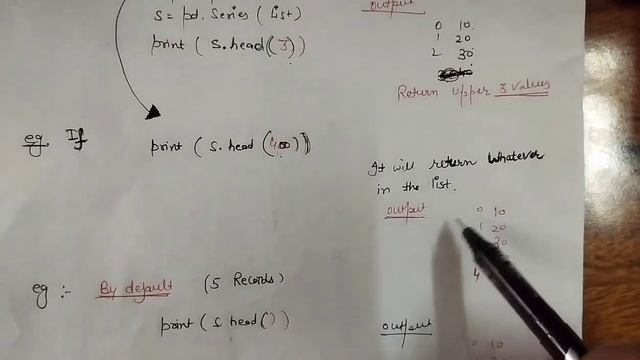 S = pd. Series (List)
print ( s.head( 3 ))
output
0 10
1 20
2 30
Return upper 3 values
eg. If
print ( s. head (400))
It will return whatever
in the list.
output
0 10
1 20
30
4
eg :- By default (5 Records)
print ( s. head ( ) )
output
0 10